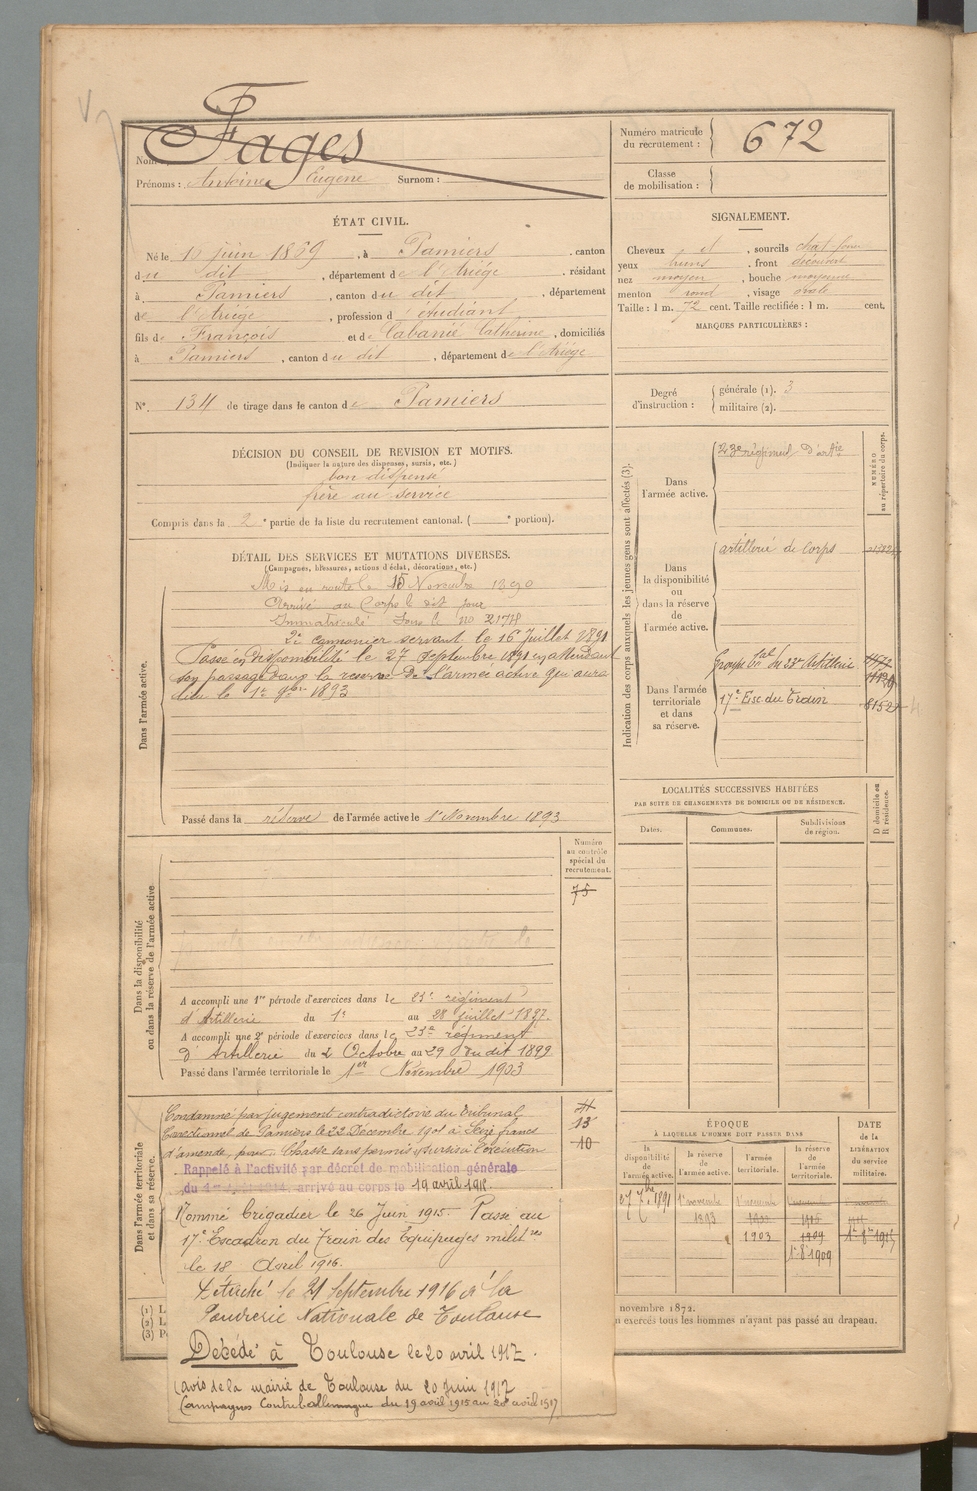 Fages
Nom
Prénoms : Antoine Eugene Surnom :
Numéro matricule du recrutement : 672
Classe de mobilisation :
ÉTAT CIVIL.
Né le 10 juin 1869, à Pamiers, canton
du dit, département de l'Ariége, résidant
à Pamiers, canton du dit, département
de l'Ariége, profession d'étudiant
fils de François et de Cabanié Catherine, domiciliés
à Pamiers, canton du dit, département de l'Ariége
N° 134 de tirage dans le canton de Pamiers
SIGNALEMENT.
Cheveux et, sourcils chat. foncé
yeux bruns, front découvert
nez moyen, bouche moyenne
menton rond, visage ovale
Taille : 1 m. 72 cent. Taille rectifiée : 1 m. cent.
MARQUES PARTICULIÈRES :
Degré d'instruction : générale (1). 3
militaire (2).
DÉCISION DU CONSEIL DE REVISION ET MOTIFS.
(Indiquer la nature des dispenses, sursis, etc.)
bon dispensé
frère au service
Compris dans la 2e partie de la liste du recrutement cantonal. ( e portion).
DÉTAIL DES SERVICES ET MUTATIONS DIVERSES.
(Campagnes, blessures, actions d'éclat, décorations, etc.)
Dans l'armée active.
Mis en route le 15 Novembre 1890
Arrivé au Corps le dit jour
Immatriculé sous le no 2178
2e cannonier servant le 16 Juillet 1891
Passé en disponibilité le 27 septembre 1891 en attendant
son passage dans la reserve de l'armée active qui aura
lieu le 1er 9bre 1893
Passé dans la réserve de l'armée active le 1er Novembre 1893
Indication des corps auxquels les jeunes gens sont affectés (3).
NUMÉRO au répertoire du corps.
Dans l'armée active.
23e régiment d'artie
Dans la disponibilité ou dans la réserve de l'armée active.
artillerie de corps
Dans l'armée territoriale et dans sa réserve.
Groupe tal du 23e Artillerie
17e Esc du Train 8152
LOCALITÉS SUCCESSIVES HABITÉES
PAR SUITE DE CHANGEMENTS DE DOMICILE OU DE RÉSIDENCE.
Dates. Communes. Subdivisions de région. D domicile ou R résidence.
Dans la disponibilité ou dans la réserve de l'armée active.
Numéro au contrôle spécial du recrutement.
75
A accompli une 1re période d'exercices dans le 23e régiment
d'Artillerie du 1er au 28 juillet 1897.
A accompli une 2e période d'exercices dans le 23e régiment
d'Artillerie du 2 Octobre au 29 du dit 1899
Passé dans l'armée territoriale le 1er Novembre 1903
Dans l'armée territoriale et dans sa réserve.
Condamné par jugement contradictoire du Tribunal
Correctionnel de Pamiers le 22 Décembre 1901 à Seize francs
d'amende, pour Chasse sans permis, sursis à l'exécution
13
10
Rappelé à l'activité par décret de mobilisation générale
du arrivé au corps le 19 avril 1915.
Nommé Brigadier le 26 Juin 1915. Passé au
17e Escadron du Train des Equipages militres
le 18 Avril 1916.
Détaché le 21 Septembre 1916 à la
Poudrerie Nationale de Toulouse
Décédé à Toulouse le 20 avril 1917.
(avis de la mairie de Toulouse du 20 Juin 1917
Campagnes Contre l'allemagne du 19 avril 1915 au 20 avril 1917
ÉPOQUE
À LAQUELLE L'HOMME DOIT PASSER DANS
la disponibilité de l'armée active. la réserve de l'armée active. l'armée territoriale. la réserve de l'armée territoriale.
DATE de la LIBÉRATION du service militaire.
27 7bre 1891 1er novembre 1893
1903 1909
1er 8bre 1909
(1) L
(2) L
(3) P
novembre 1872.
n exercés tous les hommes n'ayant pas passé au drapeau.